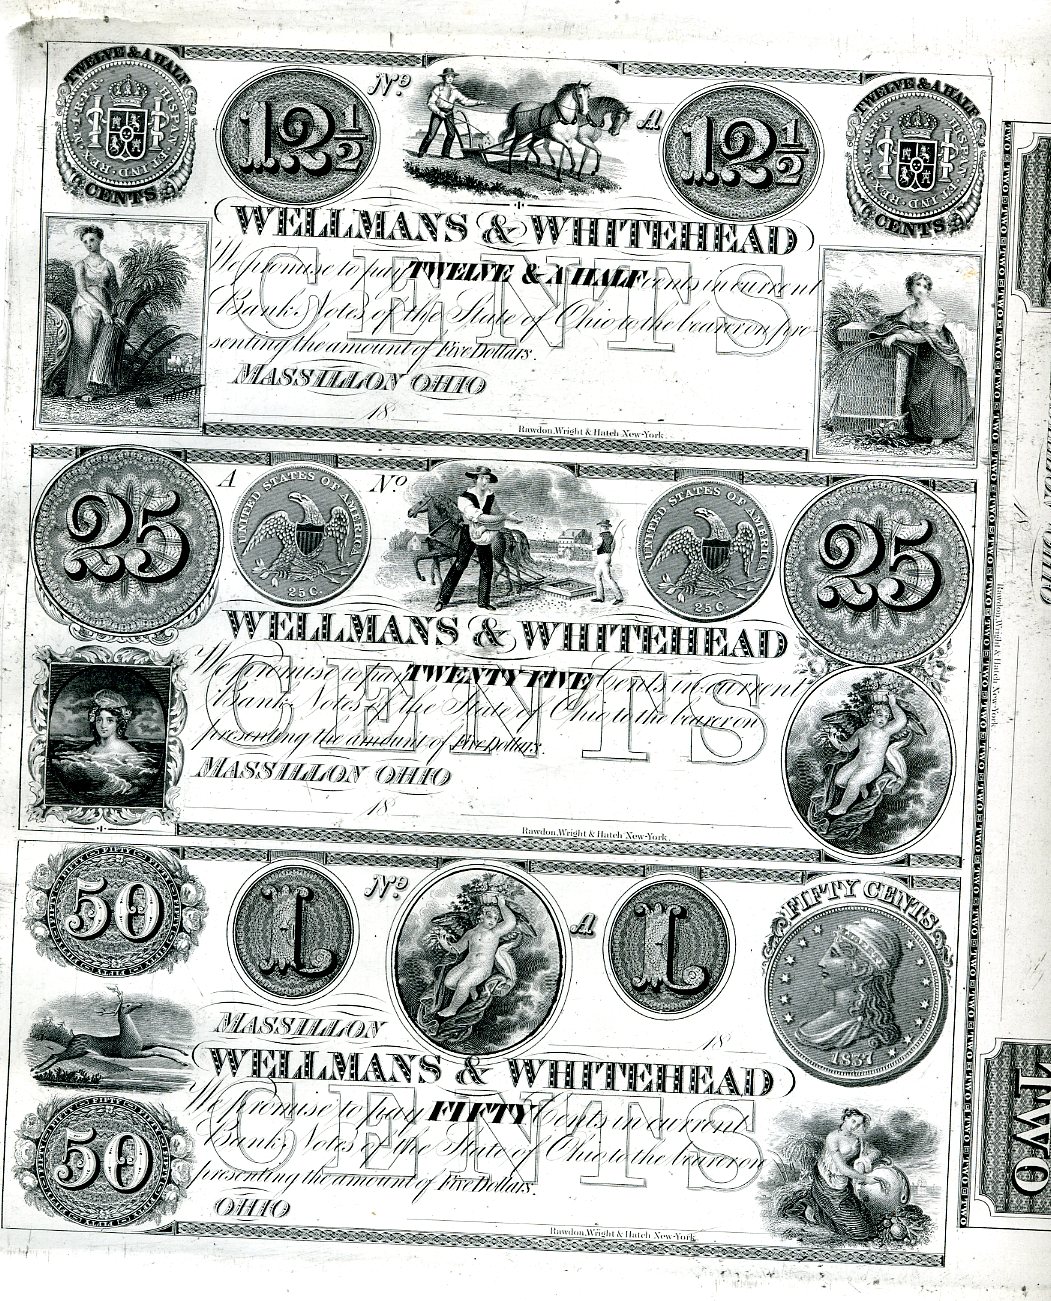 TWELVE & A HALF
CENTS
HISPAN. ET IND. REX. M. I. R. F.
12½
Nº
A
12½
TWELVE & A HALF
CENTS
WELLMANS & WHITEHEAD
CENTS
We promise to pay TWELVE & A HALF cents in current
Bank Notes of the State of Ohio to the bearer on pre-
senting the amount of Five Dollars.
MASSILLON OHIO
18
Rawdon, Wright & Hatch New-York.
25
A
UNITED STATES OF AMERICA
25 C.
Nº
UNITED STATES OF AMERICA
25 C.
25
WELLMANS & WHITEHEAD
CENTS
We promise to pay TWENTY FIVE Cents in current
Bank Notes of the State of Ohio to the bearer on
presenting the amount of Five Dollars.
MASSILLON OHIO
18
Rawdon, Wright & Hatch New-York.
50
1
Nº
A
1
FIFTY CENTS
LIBERTY
1837
MASSILLON
18
WELLMANS & WHITEHEAD
CENTS
We promise to pay FIFTY Cents in current
Bank Notes of the State of Ohio to the bearer on
presenting the amount of Five Dollars.
OHIO
50
Rawdon, Wright & Hatch New-York.
TWO TWO TWO TWO TWO TWO TWO TWO TWO
OHIO
18
Rawdon, Wright & Hatch New-York.
TWO